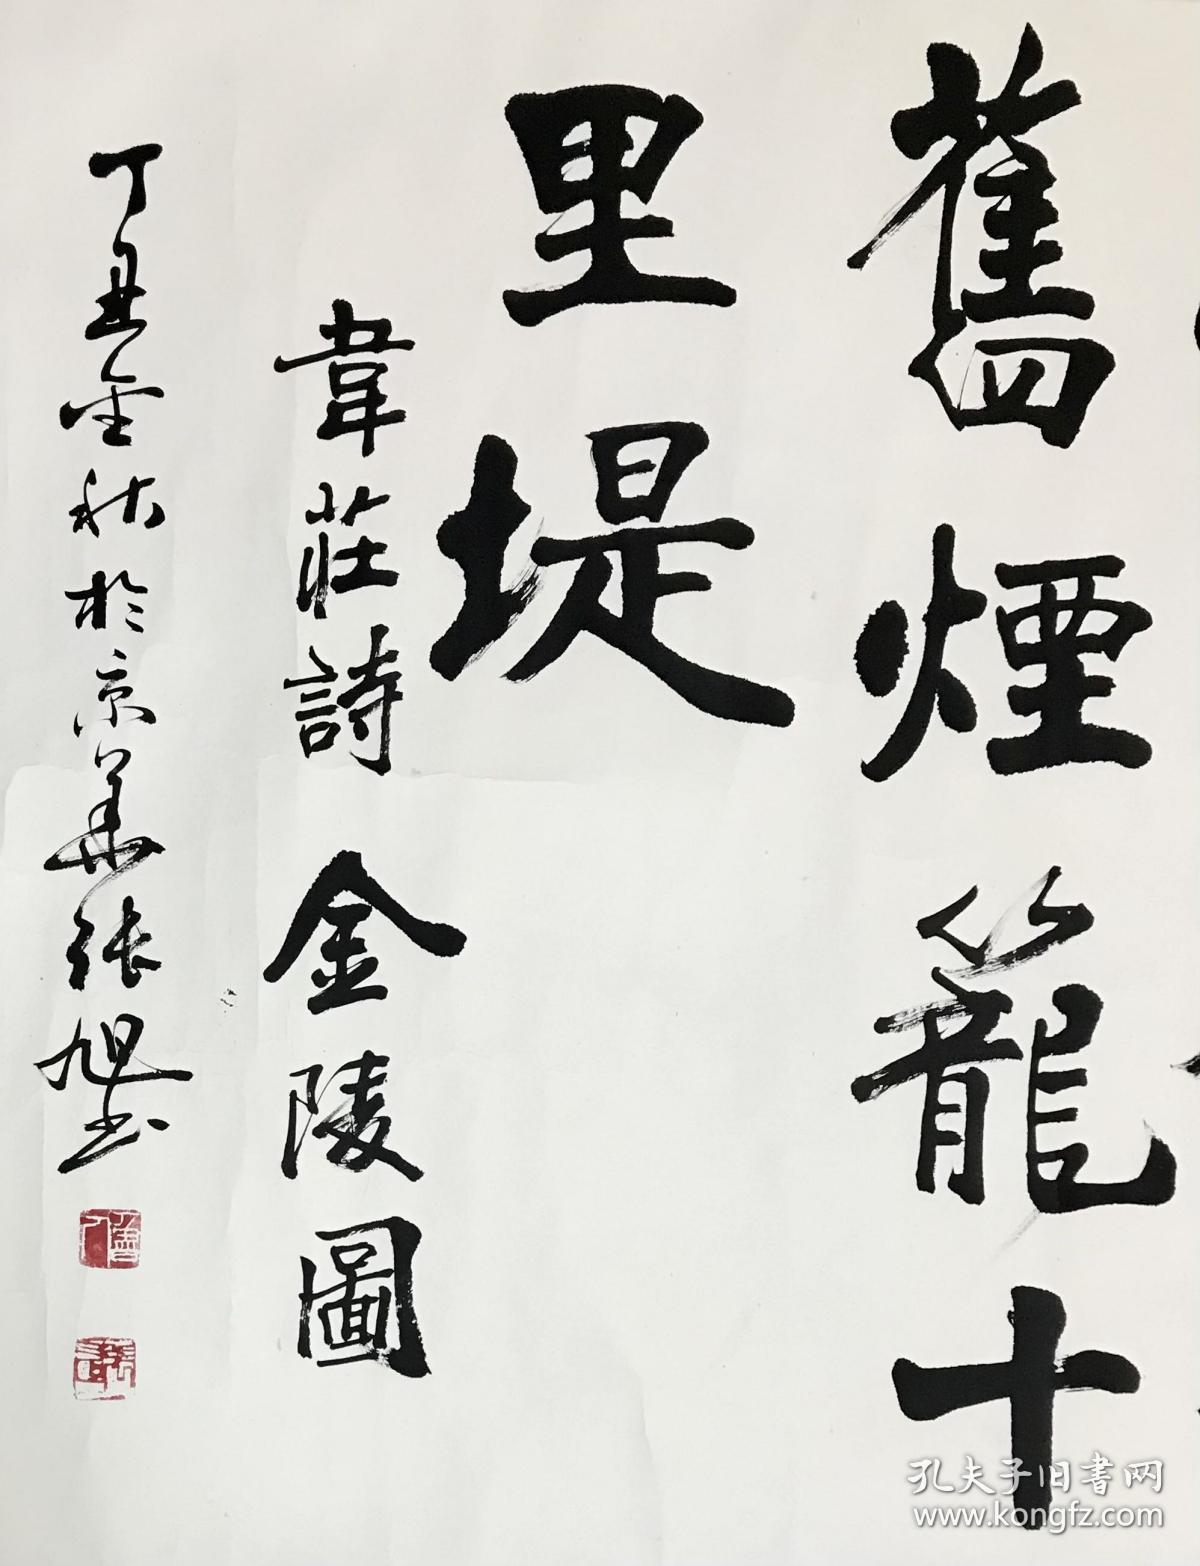 舊煙籠十
里堤
韋莊詩 金陵圖
丁丑金秋於京華張旭書
孔夫子旧書网
www.kongfz.com